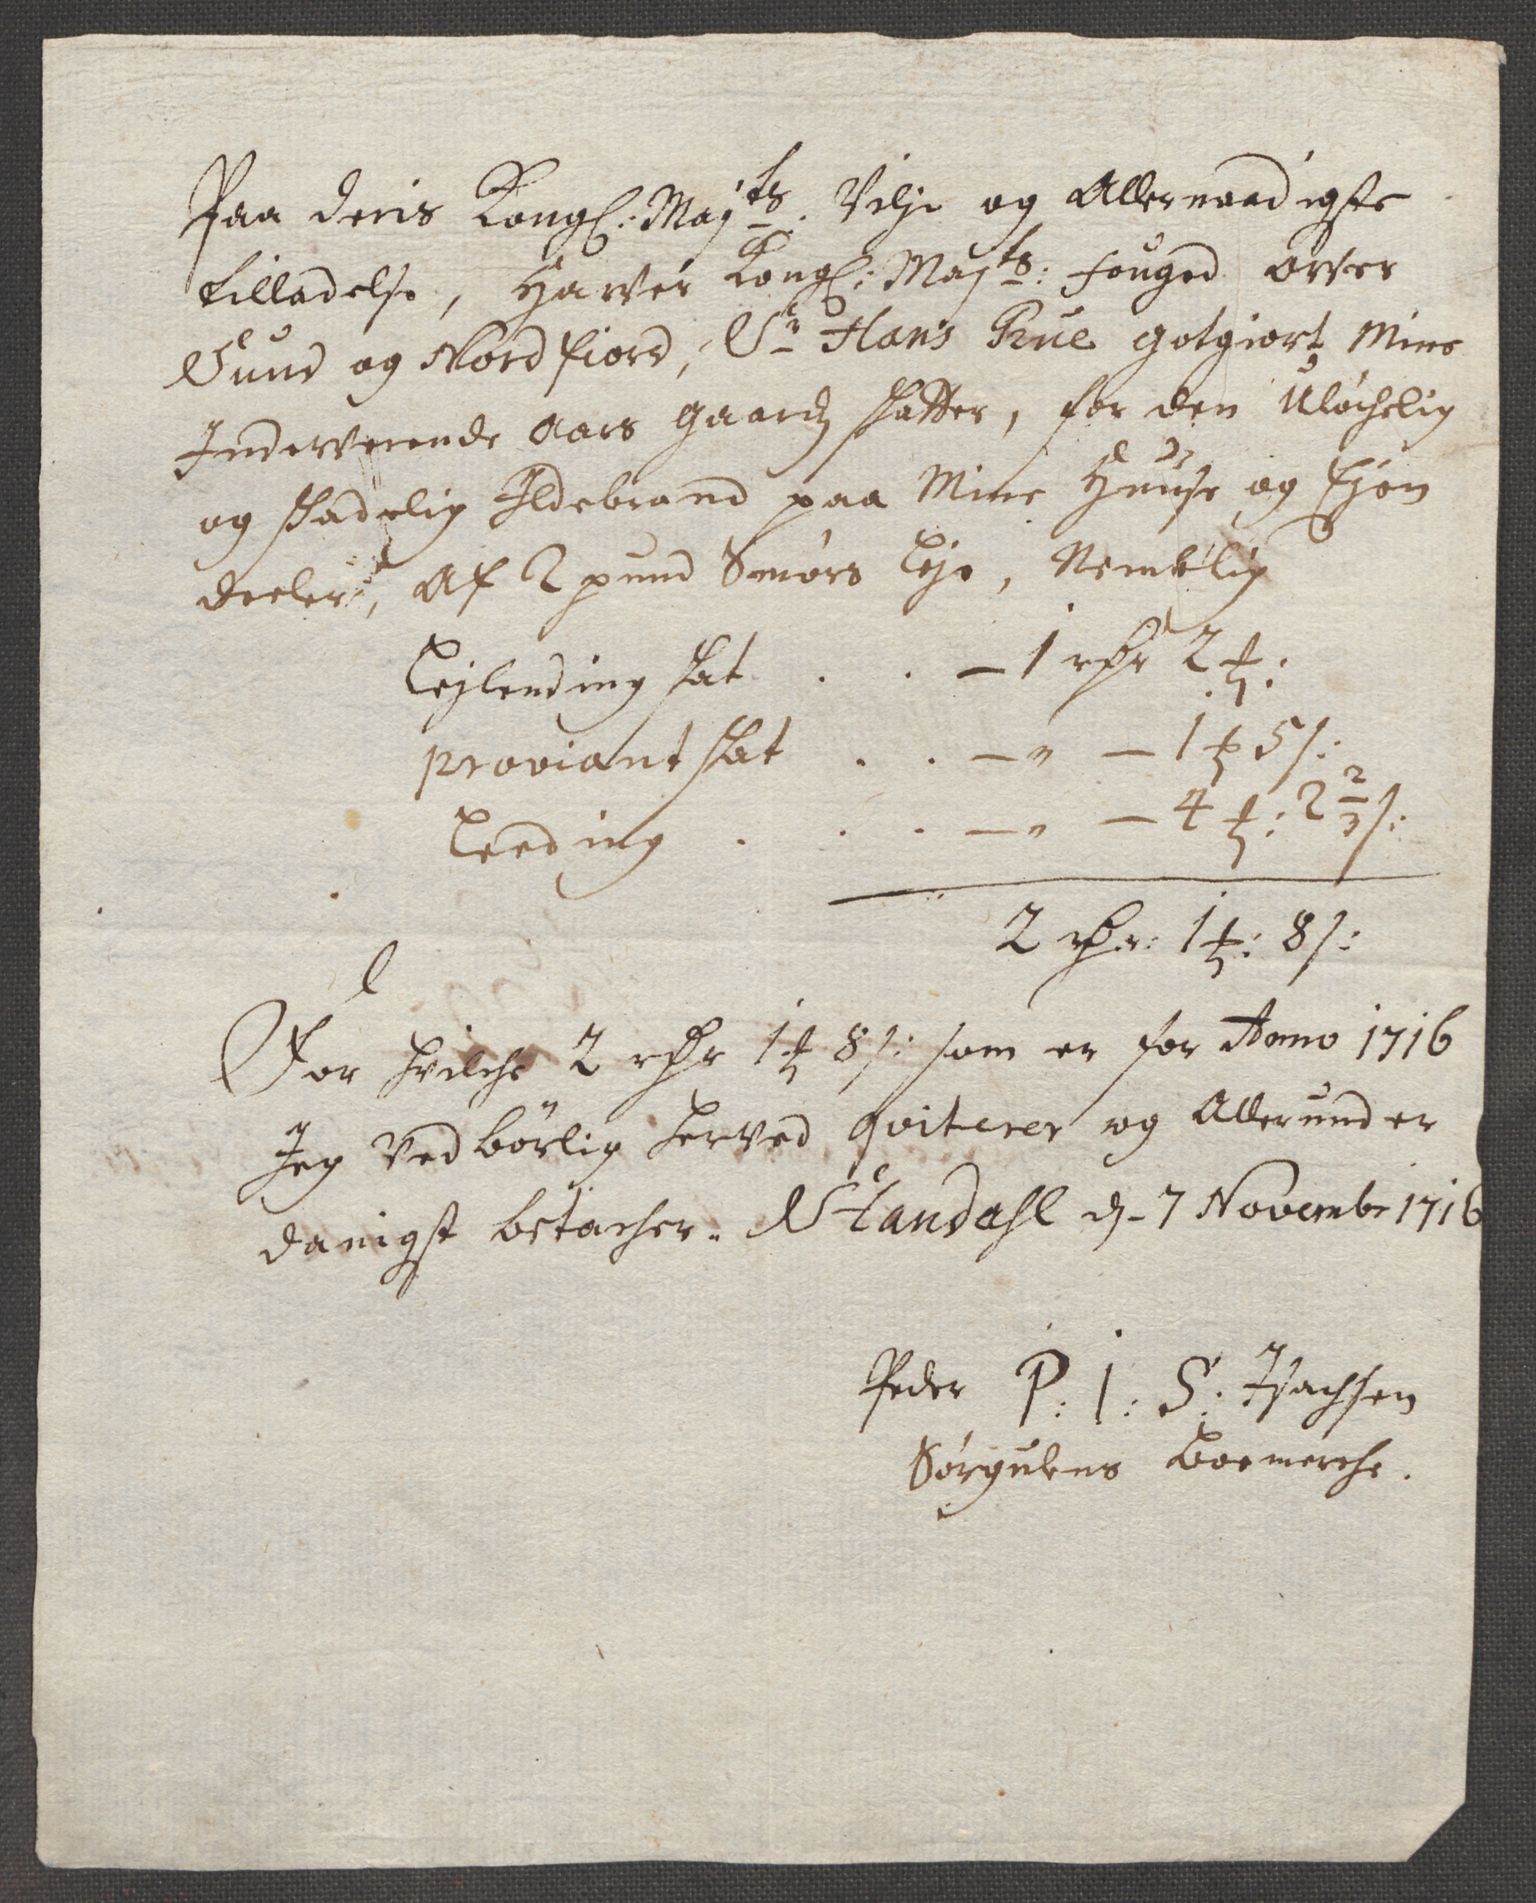 Paa deris Kongl: May:ts Vilje og Allernaadigste
tilladelse, Hawer Kongl: May:ts: fouged over
Sund og Nordfiord, Sr Hans Rue gotgiort Mine
Inderverende aars gaardz skatter, for den Ulöchelig
og skadelig Ildebrand paa Mine Huuse og Ejen
deeler, Af 2 pund Smörs leje, Nembl:ig
Lejlending skat . . — 1 rdr 2 ₰:
proviant skat . . — " — 1 ₰ 5 s:
Leeding . . . — " — 4 ₰: 2 2/3 s:
2 rdr: 1 ₰: 8 s:
For hvilche 2 rdr 1 ₰ 8 s: som er for Anno 1716
Jeg Vedbörlig herved qviterer og Allerunder
danigst betacher. Standahl d- 7 Novembr 1716
Peder P: I: S: Isachsen
Sörgulens Boemerche.